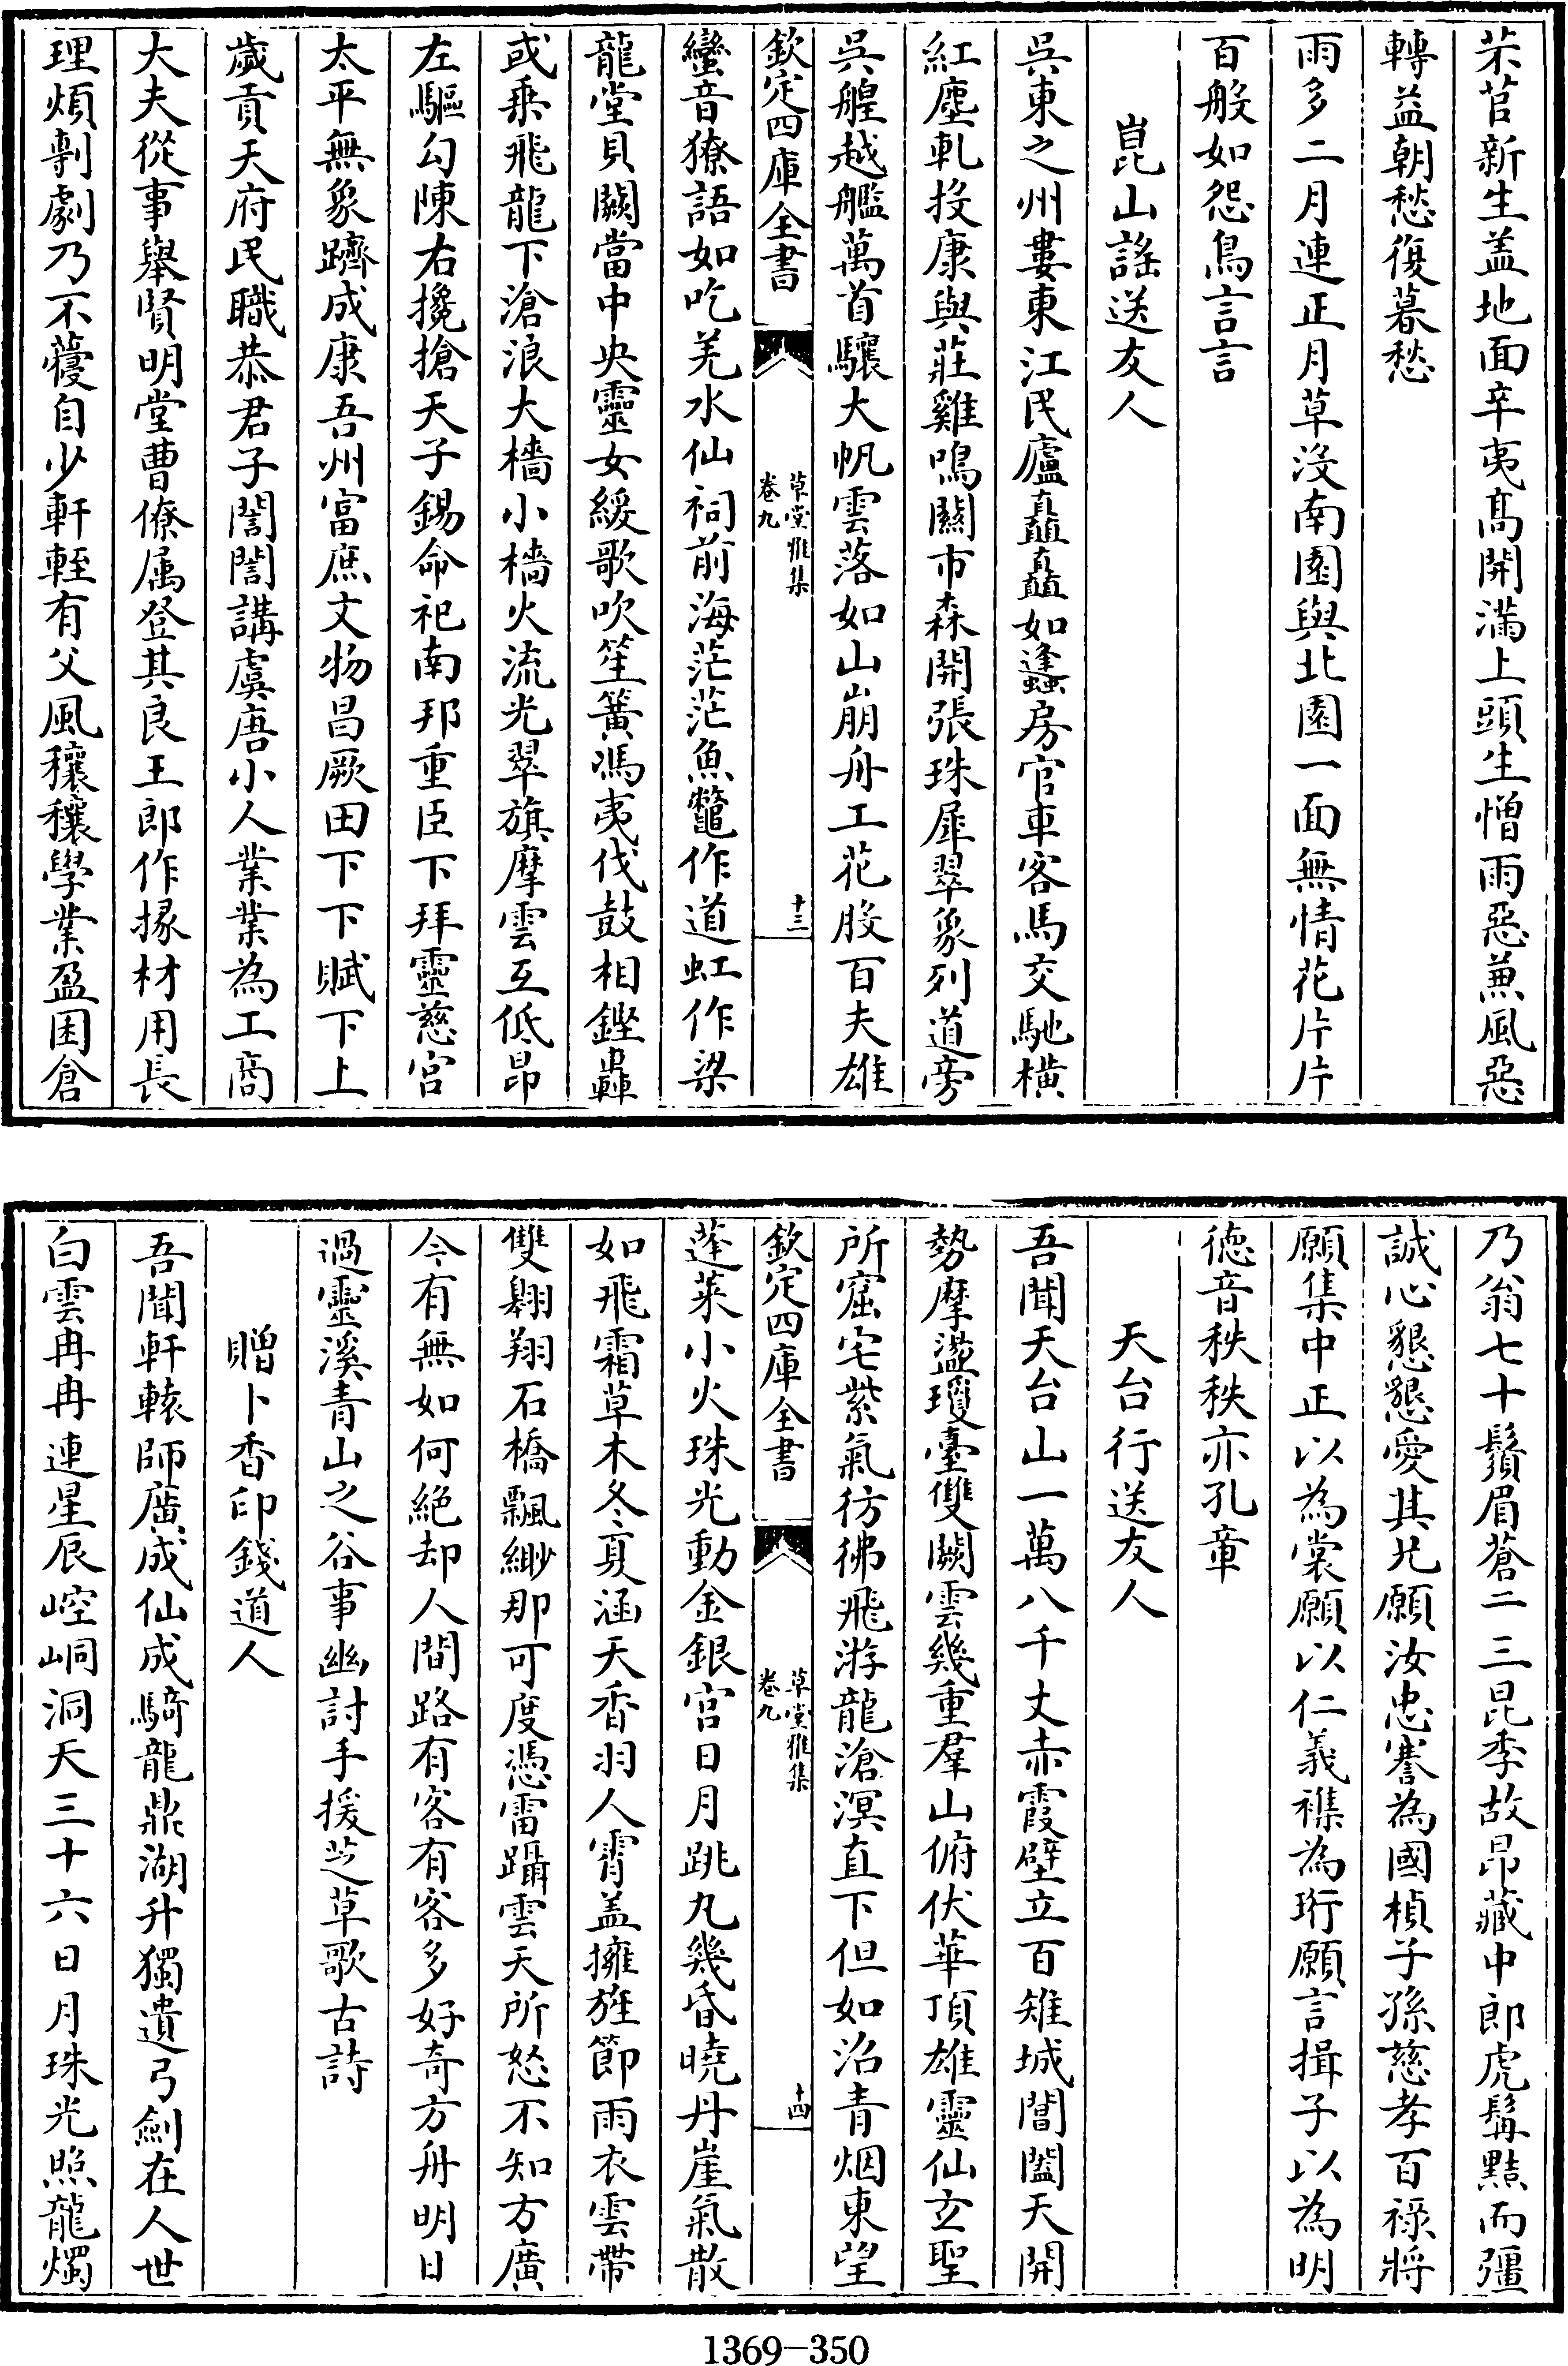 芣苢新生盖地面辛夷髙開滿上頭生憎雨惡兼風惡
轉益朝愁復暮愁
雨多二月連正月草沒南園與北園一面無情花片片
百般如怨鳥言言
崑山謡送友人
呉東之州婁東江民廬矗矗如蠭房官車客馬交馳横
紅塵軋投康與莊雞鳴闗市森開張珠犀翠象列道旁
呉艎越艦萬首驤大帆雲落如山崩舟工花股百夫雄
欽定四庫全書
草堂雅集
卷九
十三
蠻音獠語如吃羌水仙祠前海茫茫魚鼈作道虹作梁
龍堂貝闕當中央靈女緩歌吹笙簧馮夷伐鼓相鏗轟
或乗飛龍下滄浪大檣小檣火流光翠旗摩雲互低昂
左驅勾陳右攙搶天子錫命祀南邦重臣下拜靈慈宫
太平無象躋成康吾州富庶文物昌厥田下下賦下上
歲貢天府民職恭君子誾誾講虞唐小人業業為工商
大夫從事舉賢明堂曹僚属登其良王郎作掾材用長
理煩剸劇乃不薆自少軒輊有父風穰穰學業盈囷倉
乃翁七十鬚眉蒼二三昆季故昂藏中郎虎髯黠而彊
誠心懇懇愛其兄願汝忠謇為國楨子孫慈孝百禄將
願集中正以為裳願以仁義襍為珩願言揖子以為明
德音秩秩亦孔章
天台行送友人
吾聞天台山一萬八千丈赤霞壁立百雉城閶闔天開
勢摩盪瓊臺雙闕雲幾重羣山俯伏華頂雄靈仙玄聖
所窟宅紫氣彷彿飛游龍滄溟直下但如沿青烟東望
欽定四庫全書
草堂雅集
卷九
十四
蓬萊小火珠光動金銀宫日月跳丸幾昏曉丹崖氣散
如飛霜草木冬夏涵天香羽人霄盖擁旌節雨衣雲帶
雙翱翔石橋飄緲那可度憑雷躡雲天所怒不知方廣
今有無如何絶却人間路有客有客多好奇方舟明日
過靈溪青山之谷事幽討手援芝草歌古詩
贈卜香印錢道人
吾聞軒轅師廣成仙成騎龍鼎湖升獨遺弓劍在人世
白雲冉冉連星辰崆峒洞天三十六日月珠光照龍燭
1369-350